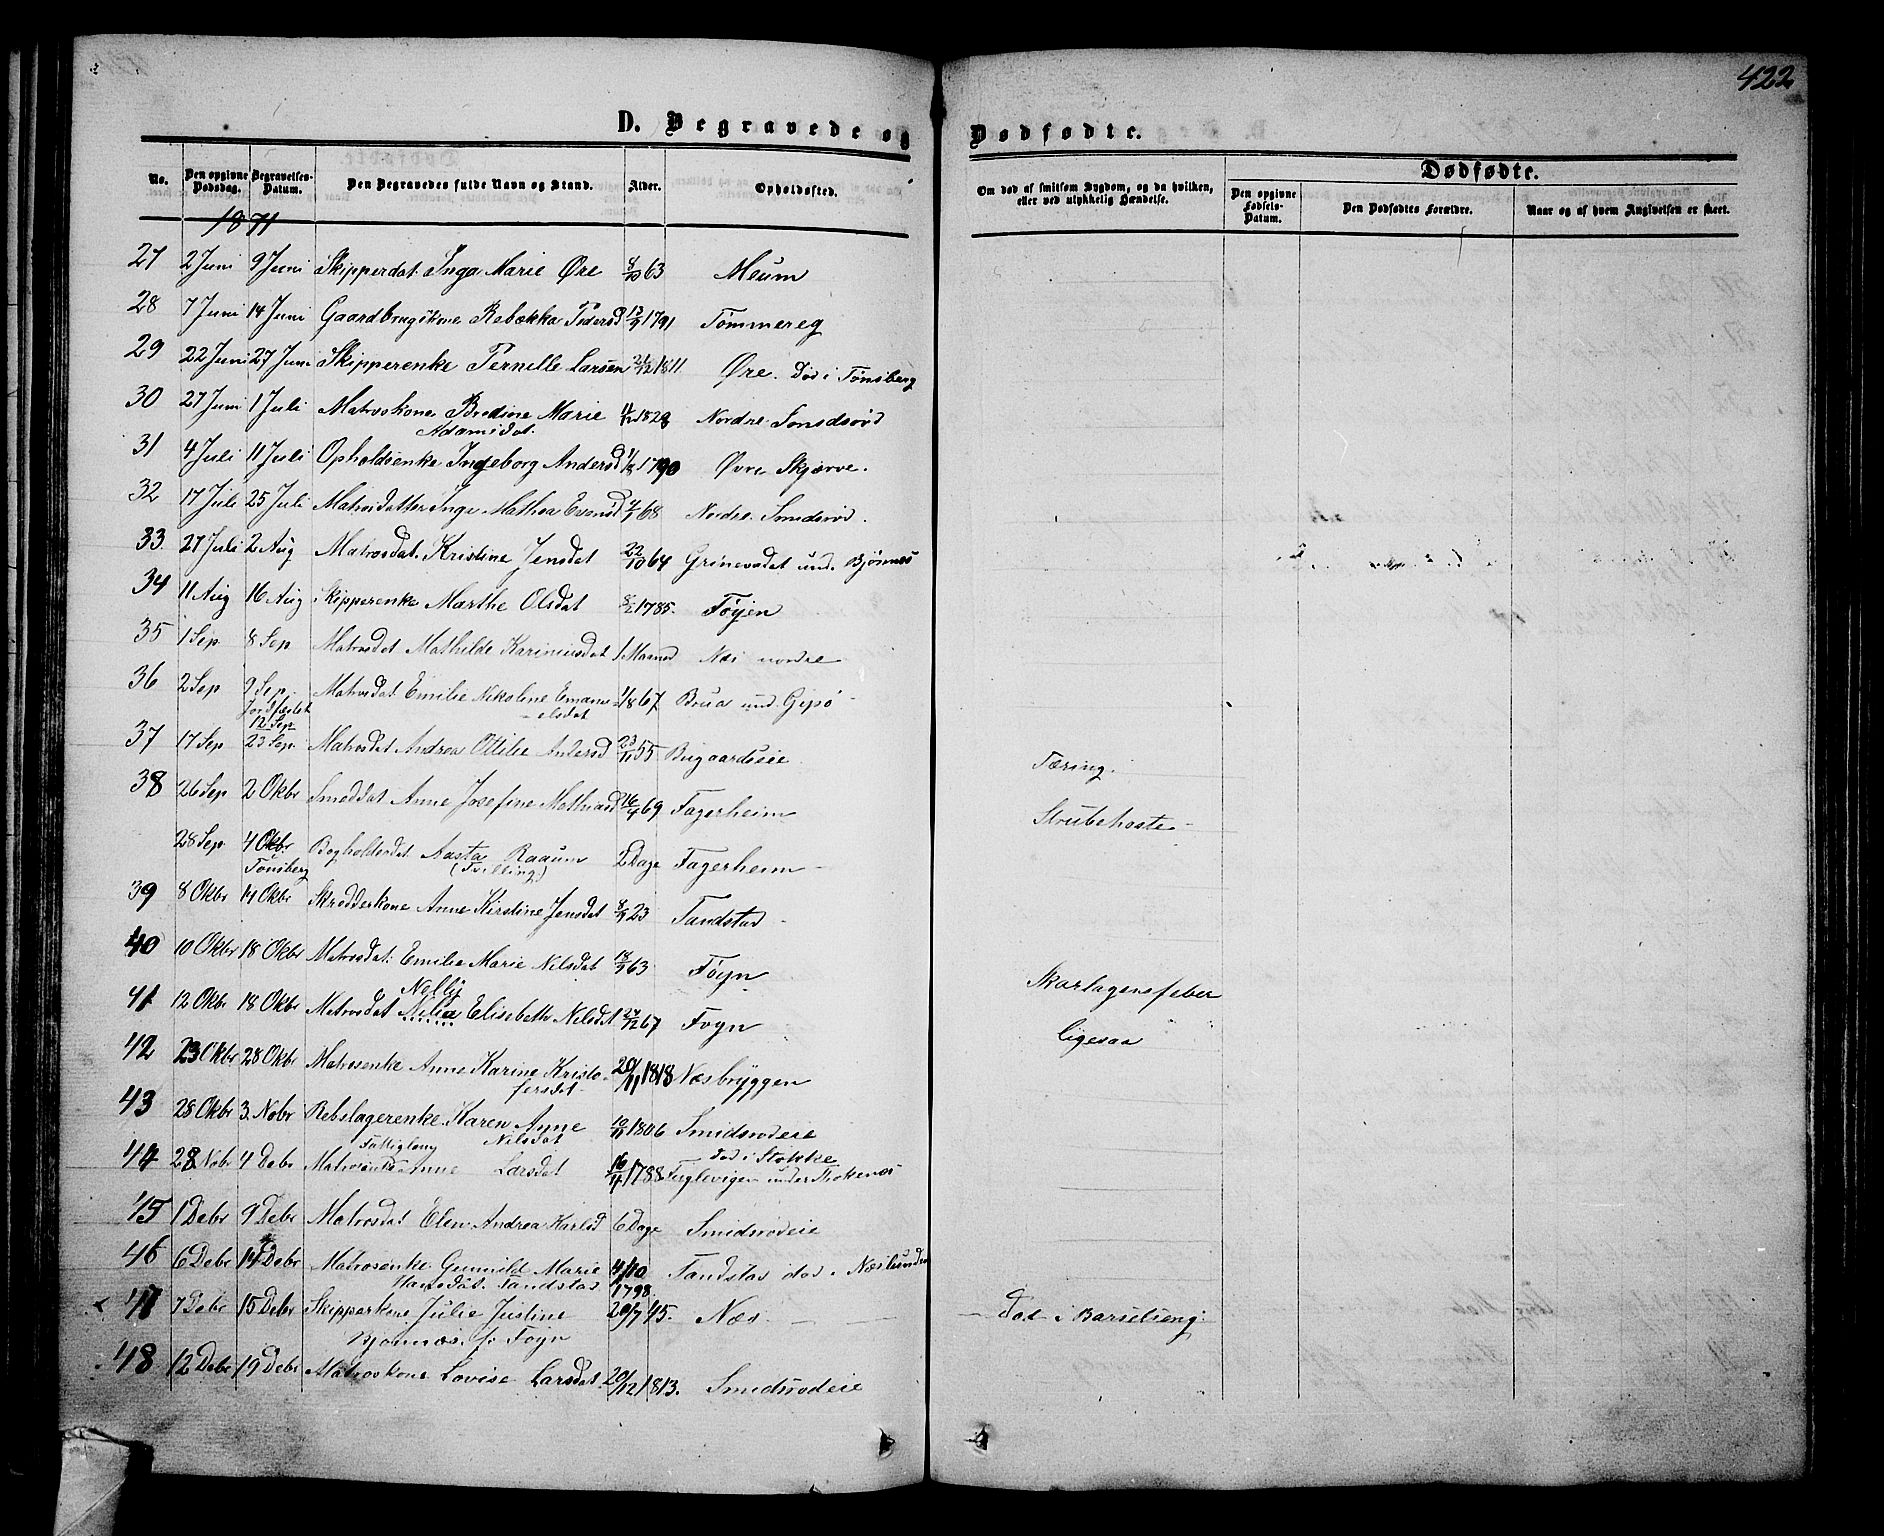 422
D. Begravede og Dødfødte.
No. Den opgivne Dødsdag. Begravelses-Datum. Den Begravedes fulde Navn og Stand. Alder. Opholdssted. Om død af smitsom Sygdom, og da hvilken, eller ved ulykkelig Hændelse. Dødfødte. Den opgivne Fødsels-Datum. Den Dødfødtes Forældre. Naar og af hvem Angivelsen er skeet.
1871
27 2 Juni 9 Juni Skipperdat. Inga Marie Øre 8/10 63 Meum
28 7 Juni 14 Juni Gaardbrugskone Rebekka Pedersd 13/9 1791 Tømmereg
29 22 Juni 27 Juni Skipperenke Pernille Larsen 21/12 1811 Øre. Død i Tønsberg
30 27 Juni 1 Juli Matroskone Bredine Marie 1828 Nordre Smidsrød
Adamsdat.
31 4 Juli 11 Juli Opholdsenke Ingeborg Andersd 1/8 1790 Øvre Skjerve.
32 17 Juli 25 Juli Matrosdatter Inge Mathea Evensd 68 Nordre Smidsrød.
33 27 Juli 2 Aug Matrosdat. Kristine Jensdat 22/10 64 und. Bjørnnes
34 11 Aug 16 Aug Skipperenke Marthe Olsdat 8/2 1785. Føyen
35 1 Sep 8 Sep Matrosdat Mathilde Kariniusdat 1 Maaned Nes nordre
36 2 Sep 9 Sep. Matrosdat Emilie Nikoline Emanu- 1/8 67 Brua und. Gipø
Jordfæstet elsdat
12 Sep
37 17 Sep 23 Sep. Matrosdat Andrea Ottilie Andersd 23/11 55 Bugaardseie. Tæring.
38 26 Sep 2 Okbr Smeddat Anne Josefine Mathiasd 16/4 69 Fagerheim Strubehoste
28 Sep 4 Okbr Bogholderdat Aasta Raaum 2 Dage Fagerheim
Tønsberg (Tvilling)
39 8 Okbr 14 Okbr Skredderkone Anne Kirstine Jensdat 8/9 23 Tandstad
40 10 Okbr 18 Okbr Matrosdat. Emilie Marie Nilsdat 18/9 63 Føyn Skarlagensfeber
Nelly
41 12 Okbr 18 Okbr Matrosdat Nilia Elisebeth Nilsdat 24/12 67 Foyn ligesaa
42 23 Okbr 28 Okbr Matrosenke Anne Karine Kristo- 20/11 1818 Næsbryggen
fersdat
43 28 Okbr 3. Nobr Rebslagerenke Karen Anne 10/11 1806 Smidsrødeie
Nilsdat
Fattiglem død i Stokke
44 28 Nobr 4 Debr Matrosenke Anne Larsdat 16/4 1788 Fuglevigen under
45 1 Debr 9 Debr Matrosdat Elen Andrea Karlsd 6 Dage Smidsrodeie
46 6 Debr 14 Debr Matrosenke Gunnild Marie 4/10 Tandstad død i
Hansdat. Tandstad 1798
47 7 Debr 15 Debr Skipperkone Julie Justine 20/7 45. Næs Død i Barselseng.
Bjønnæs f. Foyn
48 12 Debr 19 Debr Matroskone Lovise Larsdat. 20/12 1813. Smidsrodeie